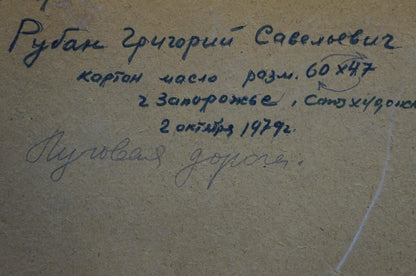 Рубан Григорий Савельевич
картон масло разм. 60х47
г Запорожье, Союз худож
2 октября 1979г.
Луговая дорога.